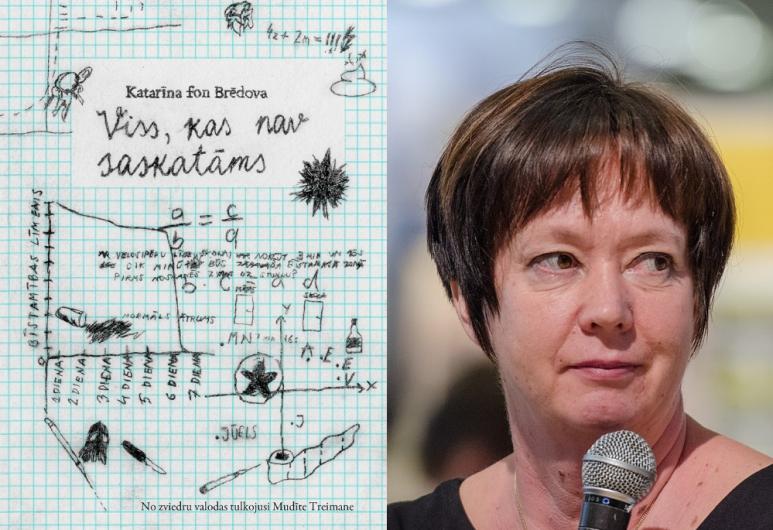 4z + 2m = !!!
Katarīna fon Brēdova
Viss, kas nav
saskatāms
BĪSTAMĪBAS LĪMENIS
a/b = c/d
CIK
BŪS
PIRMS
UZ
b . c = a . d
MĀJAS
SKOLA
NORMĀLS ĀTRUMS
Y
X
1 DIENA
2 DIENA
3 DIENA
4 DIENA
5 DIENA
6 DIENA
7 DIENA
0
. E
. E
. V
. JŪELS
. J
No zviedru valodas tulkojusi Mudīte Treimane